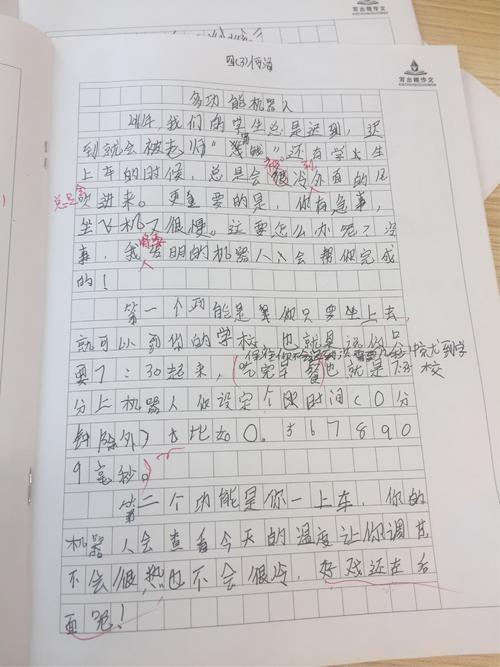 写出精作文
写出精作文
四(3)
多功能机器人
我们的学生总是迟到，迟
到就会被老师“ ”还有学生
上车的时候，总是会很冷外面的风
总是会
吹进来。更重要的是，你有急事，
坐飞机又很慢。这要怎么办呢？没
事，我发明的机器人会帮你完成
的！
第一个功能是你只要坐上去，
就可以到你的学校，也就是说你只
要7:30起来，（吃完早餐）也就是
就到学校
分上机器人你设定个时间（0分
钟除外）比如0.567890
9毫秒。
第二个功能是你一上车，你的
机器人会查看今天的温度让你调其
不会很热也不会很冷，好戏还在后
面呢！